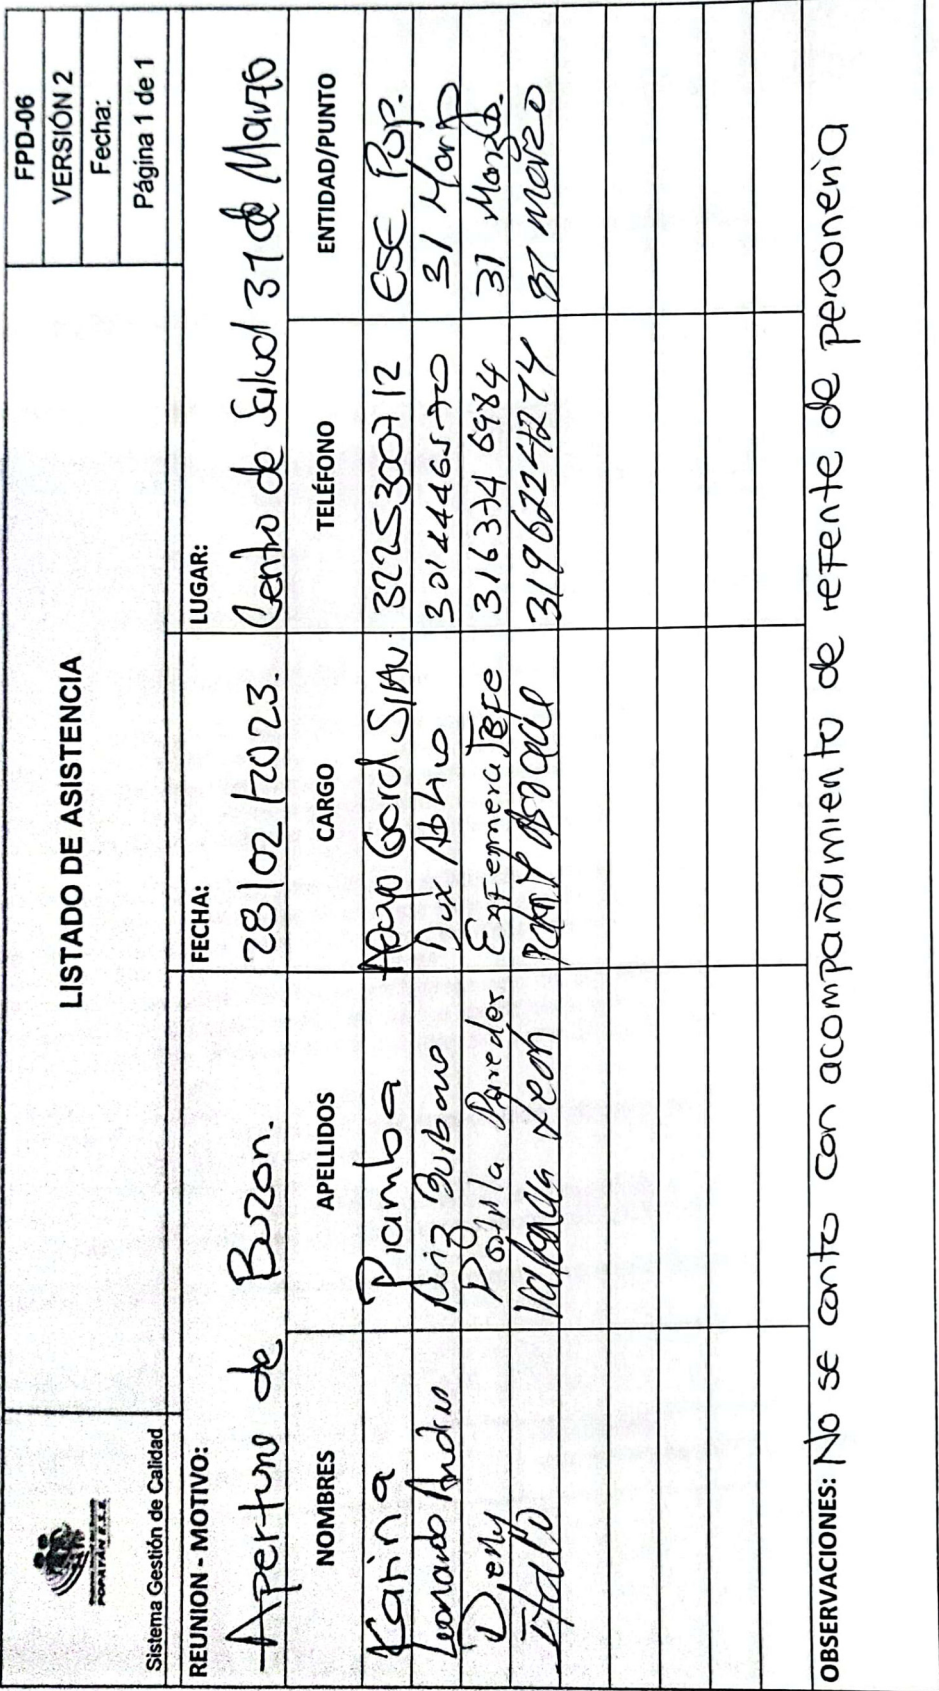 POPAYÁN E.S.E.
Sistema Gestión de Calidad
LISTADO DE ASISTENCIA
FPD-06
VERSIÓN 2
Fecha:
Página 1 de 1
REUNION - MOTIVO:
Apertura de Buzon.
FECHA:
28/02/2023.
LUGAR:
Centro de Salud 31 de Marzo
NOMBRES APELLIDOS CARGO TELÉFONO ENTIDAD/PUNTO
Karina Piamba Apoyo Gard SIAU. 3225300712 ESE Pop.
Leonardo Andres Ruiz Burbano Aux Ad 3014446570 31 Marzo
Deny Paredes Enfermera Jefe 316374 6984 31 Marzo.
Valencia Leon 3196224274 31 marzo
OBSERVACIONES: No se conto con acompañamiento de referente de personeria